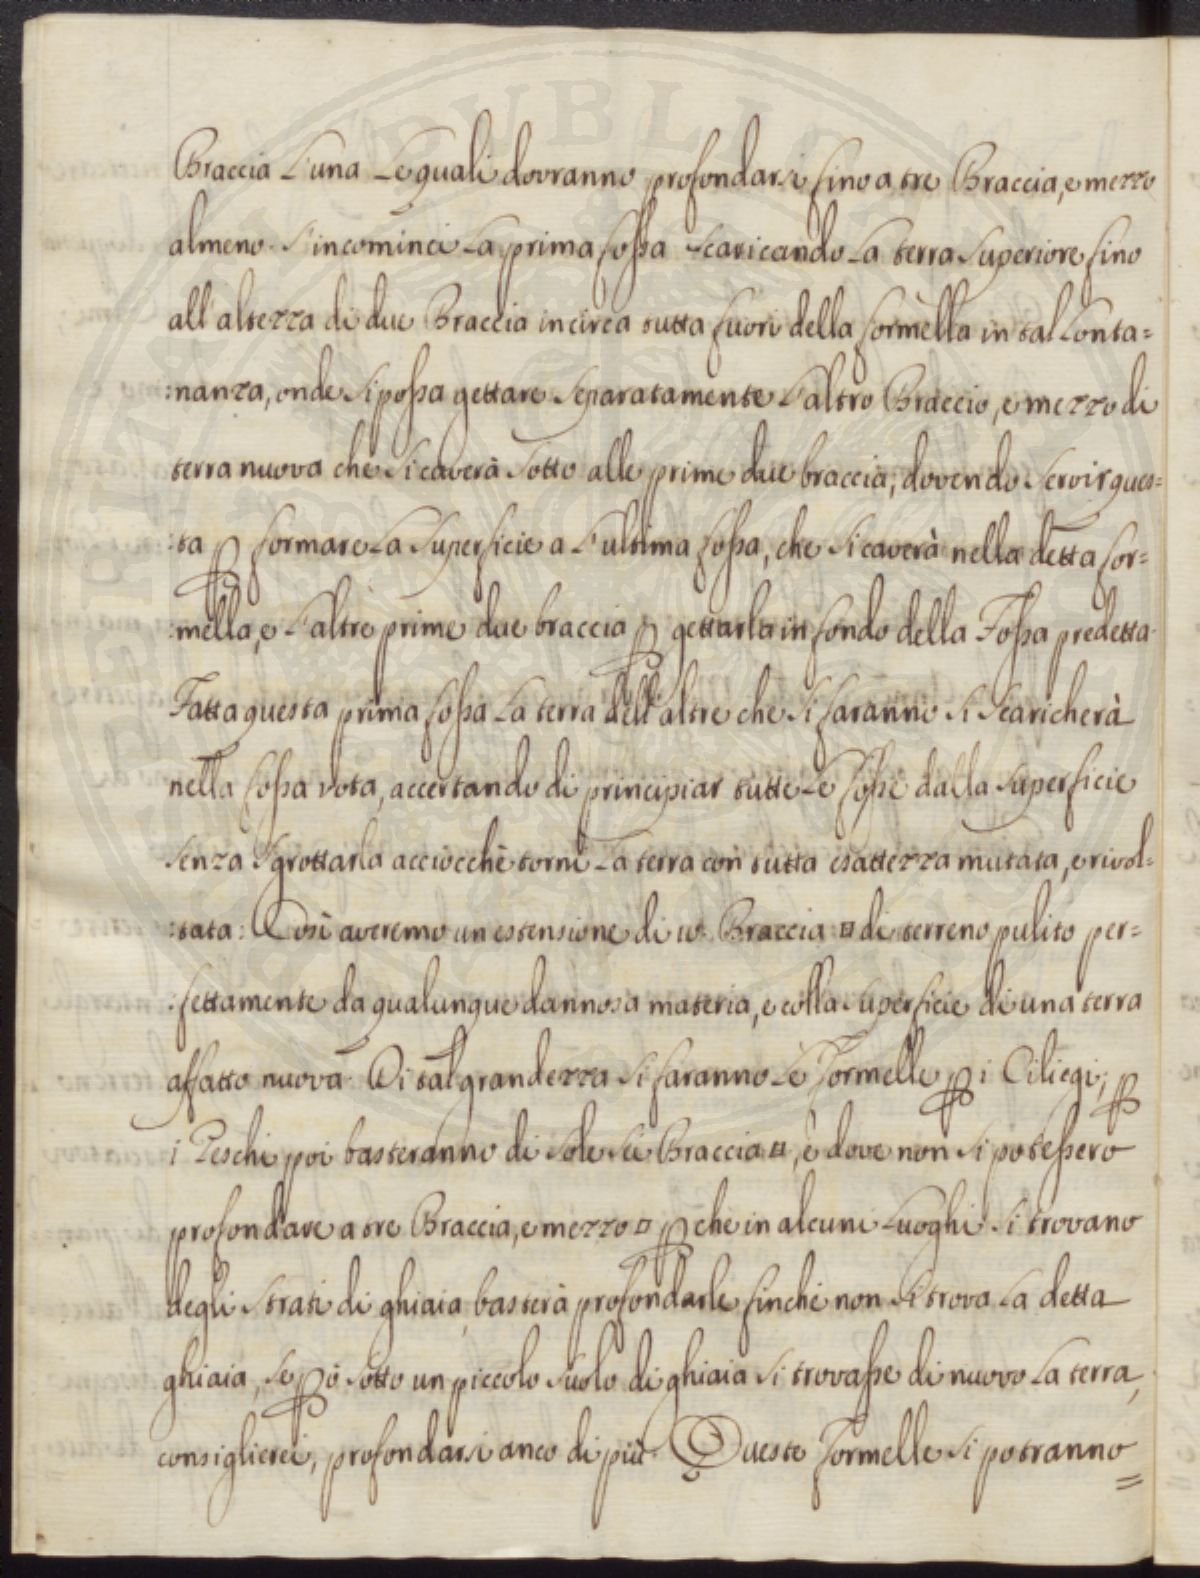 Braccia L'una Le quali dovranno profondarsi fino a tre Braccia, e mezzo
almeno. S'incominci La prima fossa scaricando La terra Superiore fino
all'altezza di due Braccia in circa tutta fuori della formella in tal Lonta=
:nanza, onde si possa gettare Separatamente L'altro Braccio, e mezzo di
terra nuova che si caverà sotto alle prime due braccia, dovendo servir ques=
:ta ꝑ formare La Superficie a L'ultima fossa, che si caverà nella detta for=
:mella, e L'altre prime due braccia ꝑ gettarle in fondo della Fossa predetta.
Fatta questa prima fossa La terra dell'altre che si faranno si scaricherà
nella fossa vota, accertando di principiar tutte Le fosse dalla superficie
senza sgrottarla acciocchè torni La terra con tutta esattezza mutata, e rivol=
:tata: Così averemo un estensione di Braccia □ di terreno pulito per=
:fettamente da qualunque dannosa materia, e colla superficie di una terra
affatto nuova. Di tal grandezza si faranno Le Formelle ꝑ i Ciliegi, ꝑ
i Peschi poi basteranno di sole sei Braccia □, e dove non si potessero
profondare a tre Braccia, e mezzo □ ꝑche in alcuni Luoghi si trovano
degli strati di ghiaia, basterà profondarle finchè non si trova La detta
ghiaia, se ꝑò sotto un piccolo suolo di ghiaia si trovasse di nuovo La terra,
consiglierei, profondarsi anco di più. Queste Formelle si potranno=